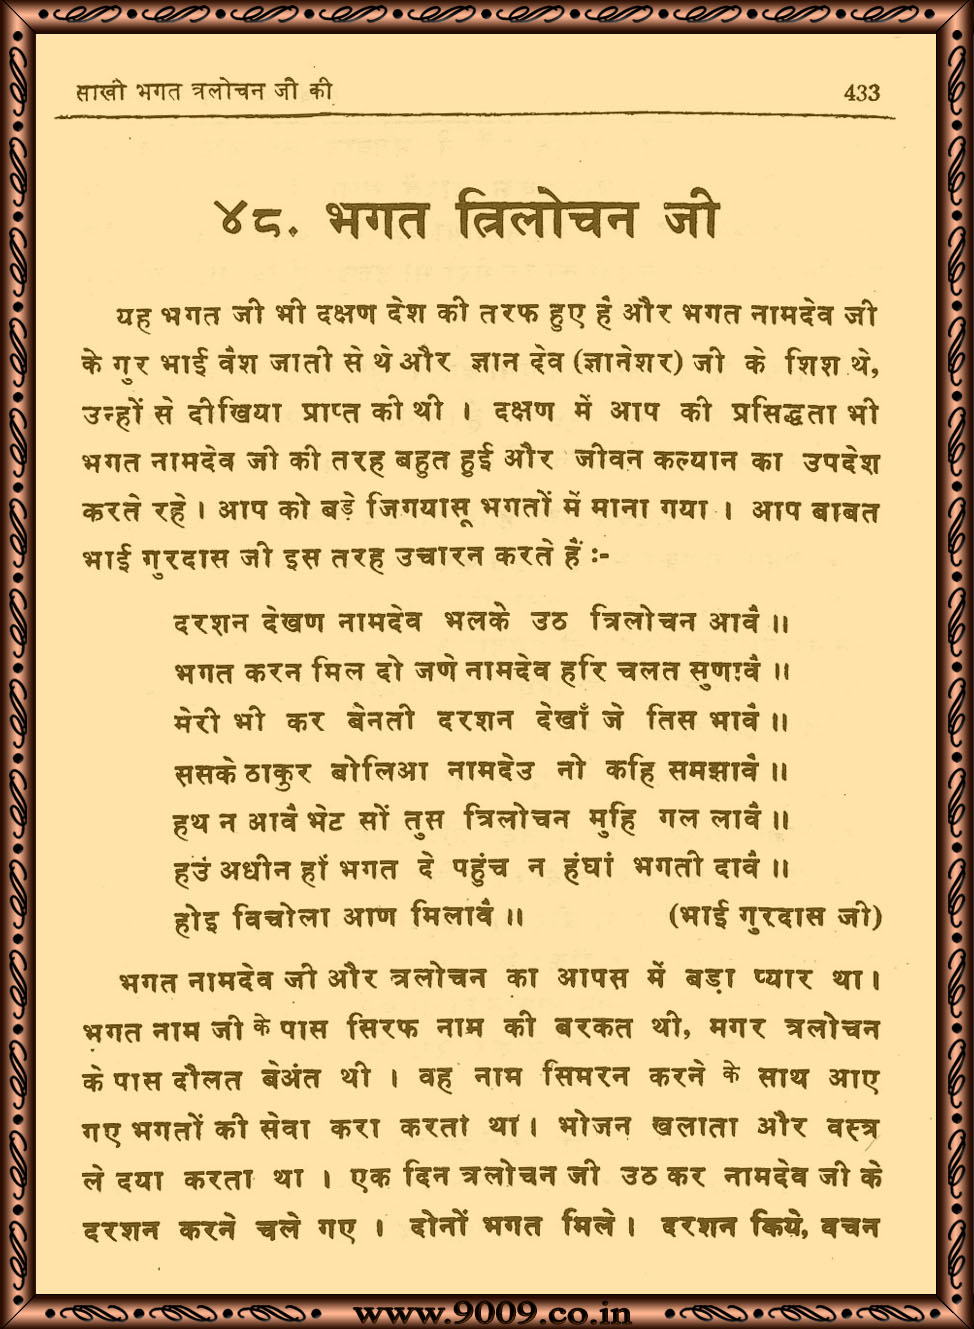 साखी भगत त्रलोचन जी की 433
४८. भगत त्रिलोचन जी
यह भगत जी भी दक्षण देश की तरफ हुए हैं और भगत नामदेव जी
के गुर भाई वैश जाती से थे और ज्ञान देव (ज्ञानेशर) जी के शिश थे,
उन्हों से दीखिया प्राप्त की थी । दक्षण में आप की प्रसिद्धता भी
भगत नामदेव जी की तरह बहुत हुई और जीवन कल्यान का उपदेश
करते रहे । आप को बड़े जिगयासू भगतों में माना गया । आप बाबत
भाई गुरदास जी इस तरह उचारन करते हैं :-
दरशन देखण नामदेव भलके उठ त्रिलोचन आवै ॥
भगत करन मिल दो जणे नामदेव हरि चलत सुणावै ॥
मेरी भी कर बेनती दरशन देखाँ जे तिस भावै ॥
ससके ठाकुर बोलिआ नामदेउ नो कहि समझावै ॥
हथ न आवै भेट सों तुस त्रिलोचन मुहि गल लावै ॥
हउं अधीन हाँ भगत दे पहुंच न हंघां भगती दावै ॥
होइ विचोला आण मिलावै ॥ (भाई गुरदास जी)
भगत नामदेव जी और त्रलोचन का आपस में बड़ा प्यार था ।
भगत नाम जी के पास सिरफ नाम की बरकत थी, मगर त्रलोचन
के पास दौलत बेअंत थी । वह नाम सिमरन करने के साथ आए
गए भगतों की सेवा करा करता था । भोजन खलाता और वस्त्र
ले दया करता था । एक दिन त्रलोचन जी उठ कर नामदेव जी के
दरशन करने चले गए । दोनों भगत मिले । दरशन किये, वचन
www.9009.co.in